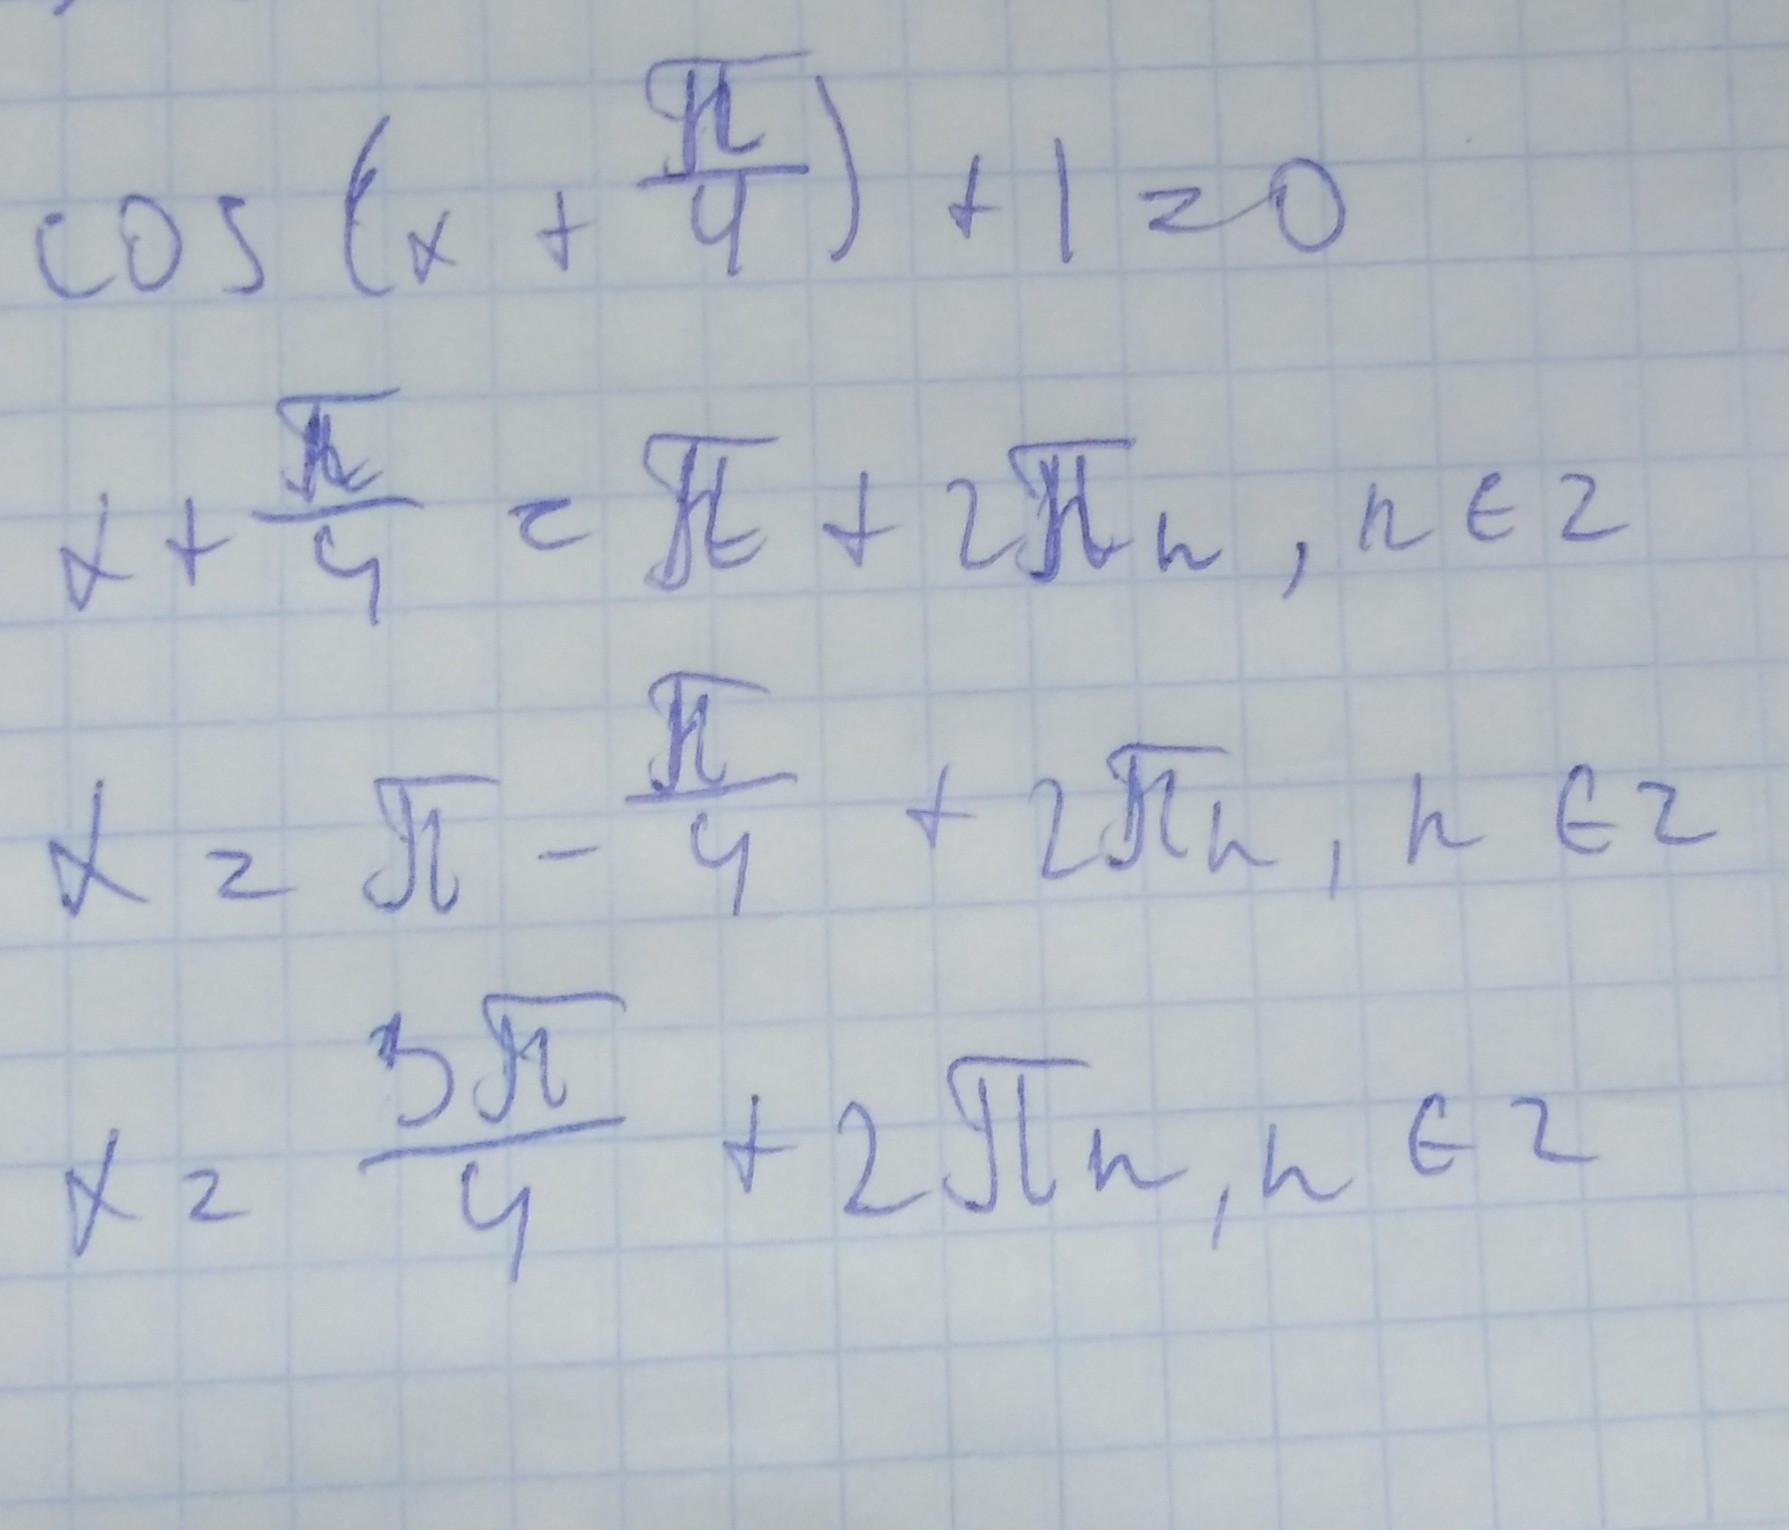 cos(x + π/4) + 1 = 0
x + π/4 = π + 2πn, n ∈ Z
x = π - π/4 + 2πn, n ∈ Z
x = 3π/4 + 2πn, n ∈ Z